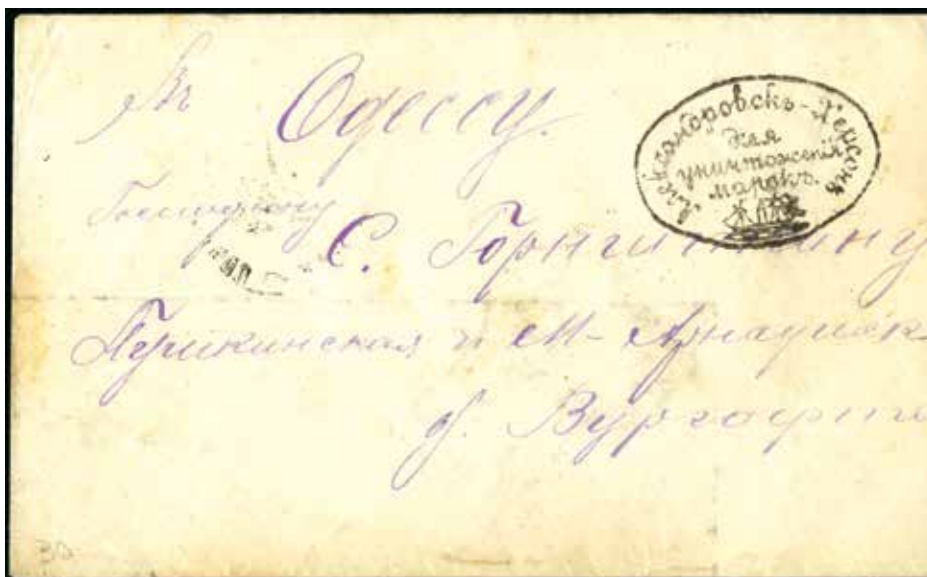 Въ Одессу.
Александровскъ-Херсонъ
для
уничтоженія
марокъ.
Господину
С.
Пушкинская и М-Арнаутск
д. Вургафта